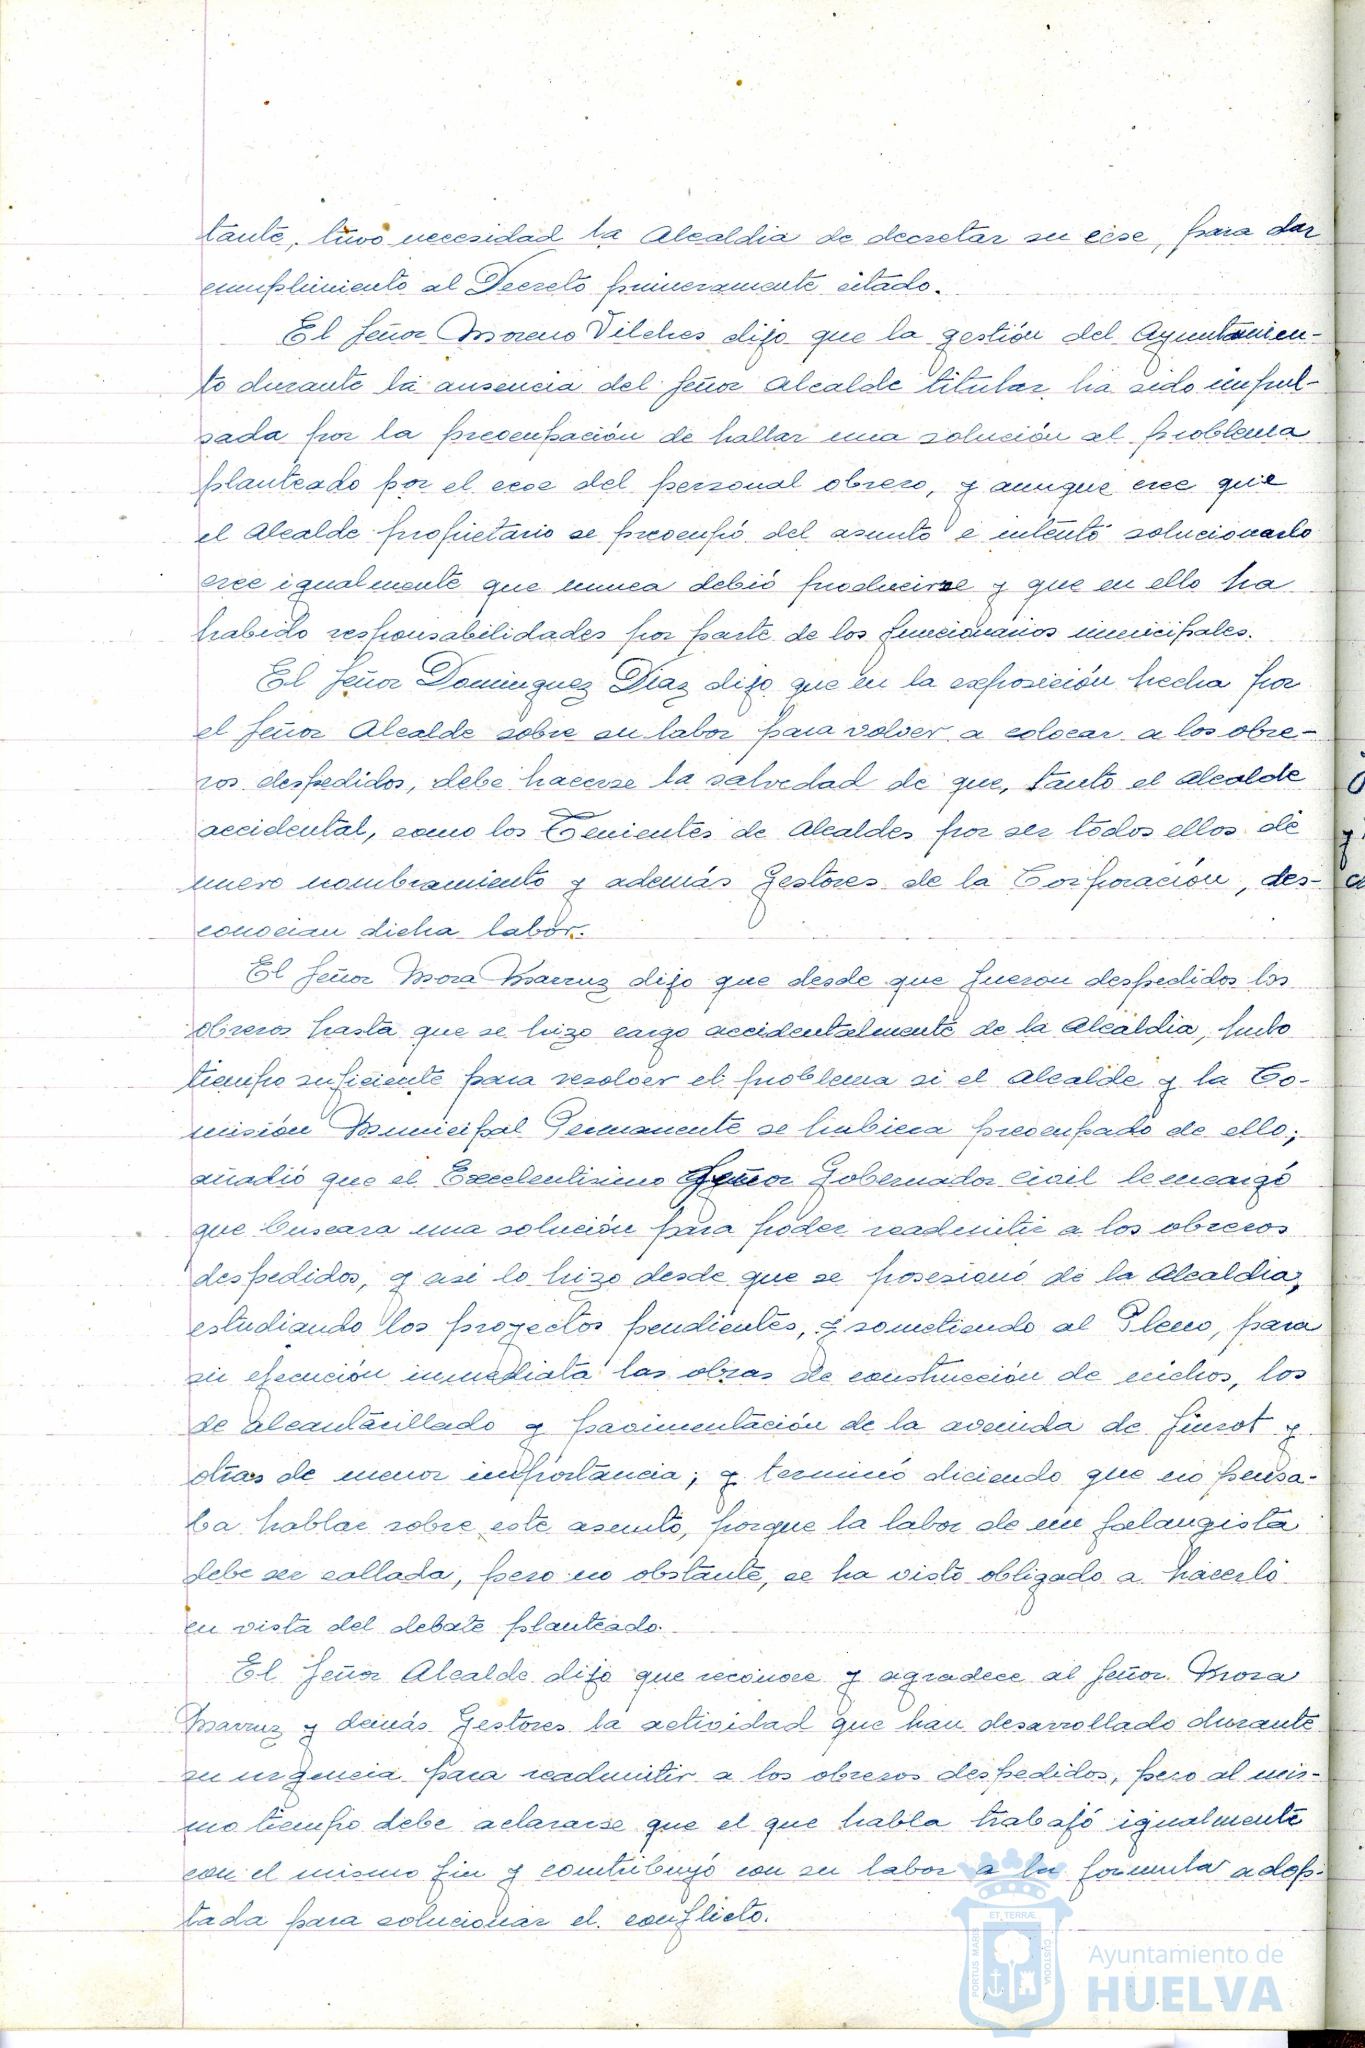 tante, tuvo necesidad la Alcaldia de decretar su cese, para dar
cumplimiento al Decreto primeramente citado.
El Señor Moreno Vilches dijo que la gestión del Ayuntamien-
to durante la ausencia del Señor Alcalde titular ha sido impul-
sada por la preocupación de hallar una solución al problema
planteado por el cese del personal obrero, y aunque cree que
el Alcalde propietario se preocupó del asunto e intentó solucionarlo
cree igualmente que nunca debió producirse y que en ello ha
habido responsabilidades por parte de los funcionarios municipales.
El Señor Dominguez Diaz dijo que en la exposición hecha por
el Señor Alcalde sobre su labor para volver a colocar a los obre-
ros despedidos, debe hacerse la salvedad de que, tanto el Alcalde
accidental, como los Tenientes de Alcaldes por ser todos ellos de
nuevo nombramiento y además Gestores de la Corporación, des-
conocian dicha labor.
El Señor Mora Marruz dijo que desde que fueron despedidos los
obreros hasta que se hizo cargo accidentalmente de la Alcaldia, hubo
tiempo suficiente para resolver el problema si el Alcalde y la Co-
misión Municipal Permanente se hubiera preocupado de ello;
añadió que el Excelentisimo Señor Gobernador Civil le encargó
que buscara una solución para poder readmitir a los obreros
despedidos, y asi lo hizo desde que se posesionó de la Alcaldia,
estudiando los proyectos pendientes, y sometiendo al Pleno, para
su ejecución inmediata las obras de construcción de nichos, los
de alcantarillado y pavimentación de la avenida de y
otras de menor importancia; y terminó diciendo que no pensa-
ba hablar sobre este asunto, porque la labor de un falangista
debe ser callada, pero no obstante, se ha visto obligado a hacerlo
en vista del debate planteado.
El Señor Alcalde dijo que reconoce y agradece al Señor Mora
Marruz y demás Gestores la actividad que han desarrollado durante
su urgencia para readmitir a los obreros despedidos, pero al mis-
mo tiempo debe aclararse que el que habla trabajó igualmente
con el mismo fin y contribuyó con su labor a la formula adop-
tada para solucionar el conflicto.
PORTUS MARIS ET TERRÆ CUSTODIA
Ayuntamiento de
HUELVA